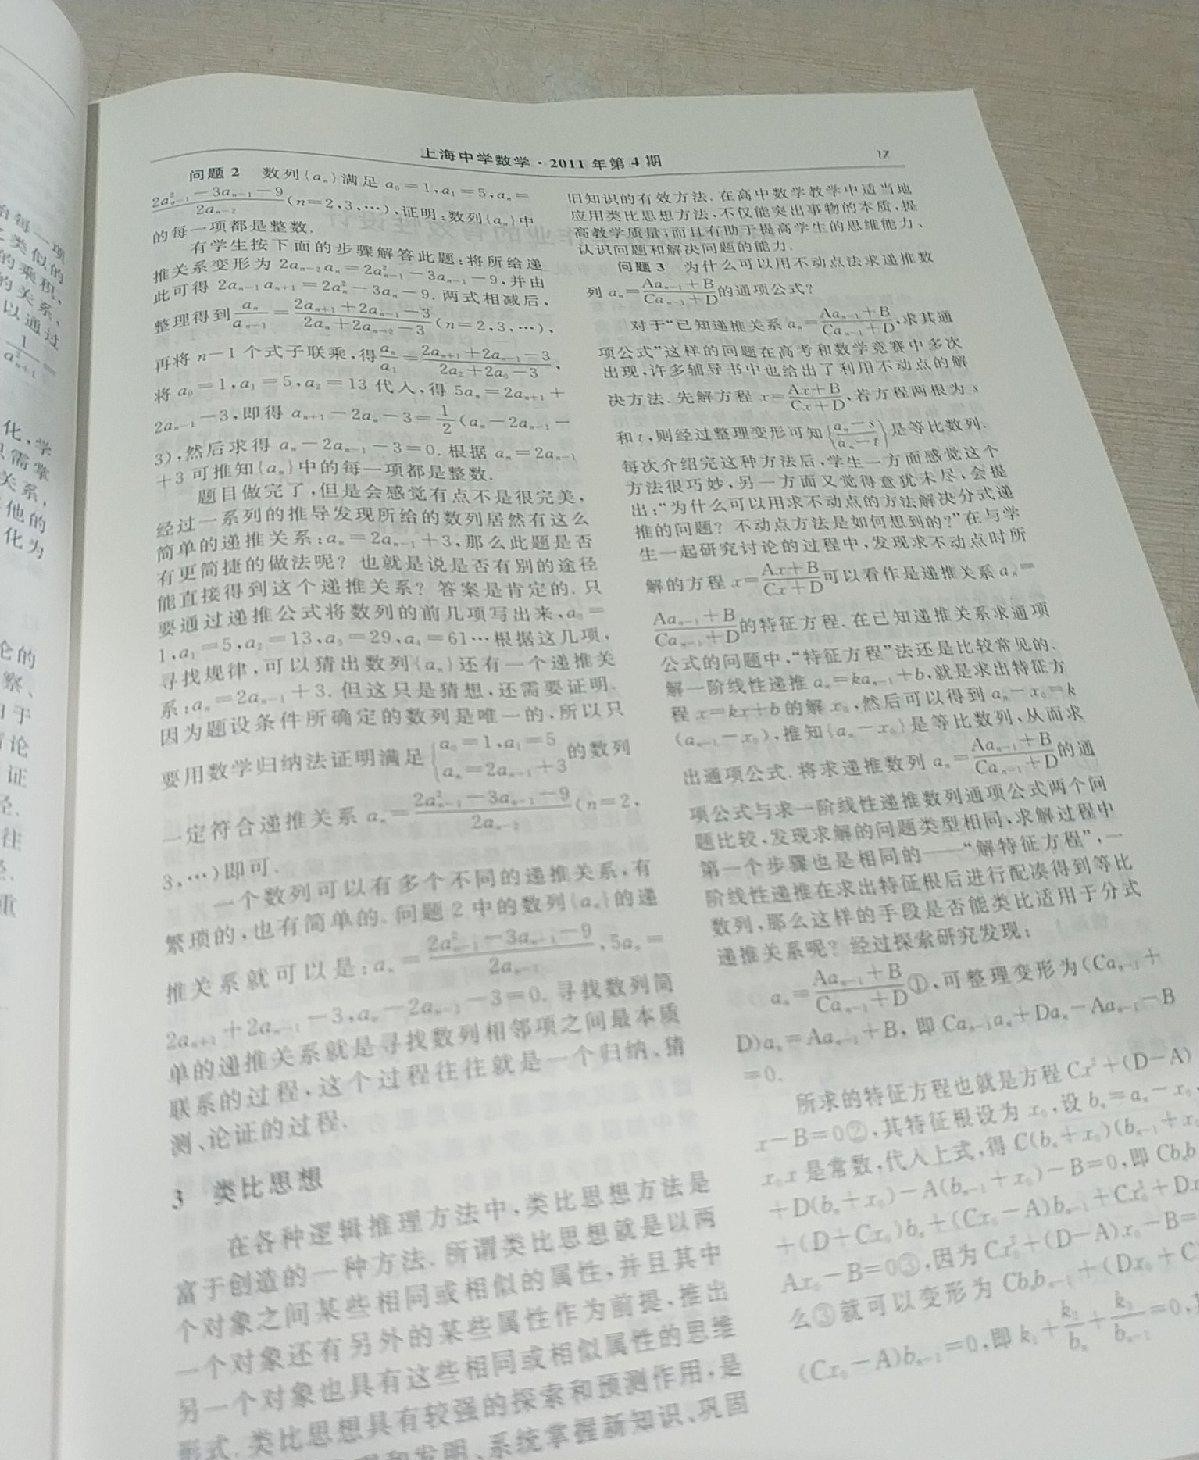 上海中学数学·2011年第4期
问题2 数列{aₙ}满足a₀=1,a₁=5,aₙ=
(2a²ₙ₋₁-3aₙ₋₁-9)/(2aₙ₋₂)(n=2,3,…),证明:数列{aₙ}中
的每一项都是整数.
有学生按下面的步骤解答此题:将所给递
推关系变形为2aₙ₋₂aₙ=2a²ₙ₋₁-3aₙ₋₁-9,并由
此可得2aₙ₋₁aₙ₊₁=2a²ₙ-3aₙ-9.两式相减后,
整理得到aₙ/aₙ₋₁=(2aₙ₊₁+2aₙ₋₁-3)/(2aₙ+2aₙ₋₂-3)(n=2,3,…),
再将n-1个式子联乘,得aₙ/a₁=(2aₙ₊₁+2aₙ₋₁-3)/(2a₂+2a₀-3),
将a₀=1,a₁=5,a₂=13代入,得5aₙ=2aₙ₊₁+
2aₙ₋₁-3,即得aₙ₊₁-2aₙ-3=1/2(aₙ-2aₙ₋₁-
3),然后求得aₙ-2aₙ₋₁-3=0.根据aₙ=2aₙ₋₁
+3可推知{aₙ}中的每一项都是整数.
题目做完了,但是会感觉有点不是很完美,
经过一系列的推导发现所给的数列居然有这么
简单的递推关系:aₙ=2aₙ₋₁+3,那么此题是否
有更简捷的做法呢?也就是说是否有别的途径
能直接得到这个递推关系?答案是肯定的.只
要通过递推公式将数列的前几项写出来,a₀=
1,a₁=5,a₂=13,a₃=29,a₄=61…根据这几项,
寻找规律,可以猜出数列{aₙ}还有一个递推关
系:aₙ=2aₙ₋₁+3.但这只是猜想,还需要证明.
因为题设条件所确定的数列是唯一的,所以只
要用数学归纳法证明满足{a₀=1,a₁=5
aₙ=2aₙ₋₁+3的数列
一定符合递推关系aₙ=(2a²ₙ₋₁-3aₙ₋₁-9)/(2aₙ₋₂)(n=2,
3,…)即可.
一个数列可以有多个不同的递推关系,有
繁琐的,也有简单的.问题2中的数列{aₙ}的递
推关系就可以是:aₙ=(2a²ₙ₋₁-3aₙ₋₁-9)/(2aₙ₋₂),5aₙ=
2aₙ₊₁+2aₙ₋₁-3,aₙ-2aₙ₋₁-3=0.寻找数列简
单的递推关系就是寻找数列相邻项之间最本质
联系的过程,这个过程往往就是一个归纳、猜
测、论证的过程.
3 类比思想
在各种逻辑推理方法中,类比思想方法是
富于创造的一种方法.所谓类比思想就是以两
个对象之间某些相同或相似的属性,并且其中
一个对象还有另外的某些属性作为前提,推出
另一个对象也具有这些相同或相似属性的思维
形式.类比思想具有较强的探索和预测作用,是
和发明、系统掌握新知识、巩固
旧知识的有效方法.在高中数学教学中适当地
应用类比思想方法,不仅能突出事物的本质,提
高教学质量;而且有助于提高学生的思维能力、
认识问题和解决问题的能力.
问题3 为什么可以用不动点法求递推数
列aₙ=(Aaₙ₋₁+B)/(Caₙ₋₁+D)的通项公式?
对于"已知递推关系aₙ=(Aaₙ₋₁+B)/(Caₙ₋₁+D),求其通
项公式"这样的问题在高考和数学竞赛中多次
出现,许多辅导书中也给出了利用不动点的解
决方法.先解方程x=(Ax+B)/(Cx+D),若方程两根为s
和t,则经过整理变形可知{(aₙ-s)/(aₙ-t)}是等比数列.
每次介绍完这种方法后,学生一方面感觉这个
方法很巧妙,另一方面又觉得意犹未尽,会提
出:"为什么可以用求不动点的方法解决分式递
推的问题?不动点方法是如何想到的?"在与学
生一起研究讨论的过程中,发现求不动点时所
解的方程x=(Ax+B)/(Cx+D)可以看作是递推关系aₙ=
(Aaₙ₋₁+B)/(Caₙ₋₁+D)的特征方程.在已知递推关系求通项
公式的问题中,"特征方程"法还是比较常见的.
解一阶线性递推aₙ=kaₙ₋₁+b,就是求出特征方
程x=kx+b的解x₀,然后可以得到aₙ-x₀=k
(aₙ₋₁-x₀),推知{aₙ-x₀}是等比数列,从而求
出通项公式.将求递推数列aₙ=(Aaₙ₋₁+B)/(Caₙ₋₁+D)的通
项公式与求一阶线性递推数列通项公式两个问
题比较,发现求解的问题类型相同,求解过程中
第一个步骤也是相同的——"解特征方程",一
阶线性递推在求出特征根后进行配凑得到等比
数列,那么这样的手段是否能类比适用于分式
递推关系呢?经过探索研究发现:
aₙ=(Aaₙ₋₁+B)/(Caₙ₋₁+D)①,可整理变形为(Caₙ₋₁+
D)aₙ=Aaₙ₋₁+B,即Caₙ₋₁aₙ+Daₙ-Aaₙ₋₁-B
=0.
所求的特征方程也就是方程Cx²+(D-A)
x-B=0②,其特征根设为x₀,设bₙ=aₙ-x₀,
x₀是常数,代入上式,得C(bₙ+x₀)(bₙ₋₁+x₀
+D(bₙ+x₀)-A(bₙ₋₁+x₀)-B=0,即Cbₙb
+(D+Cx₀)bₙ+(Cx₀-A)bₙ₋₁+Cx₀²+Dx
Ax₀-B=0③,因为Cx₀²+(D-A)x₀-B=
么③就可以变形为Cbₙbₙ₋₁+(Dx₀+C
(Cx₀-A)bₙ₋₁=0,即k₁+k₂/bₙ+k₃/bₙ₋₁=0,